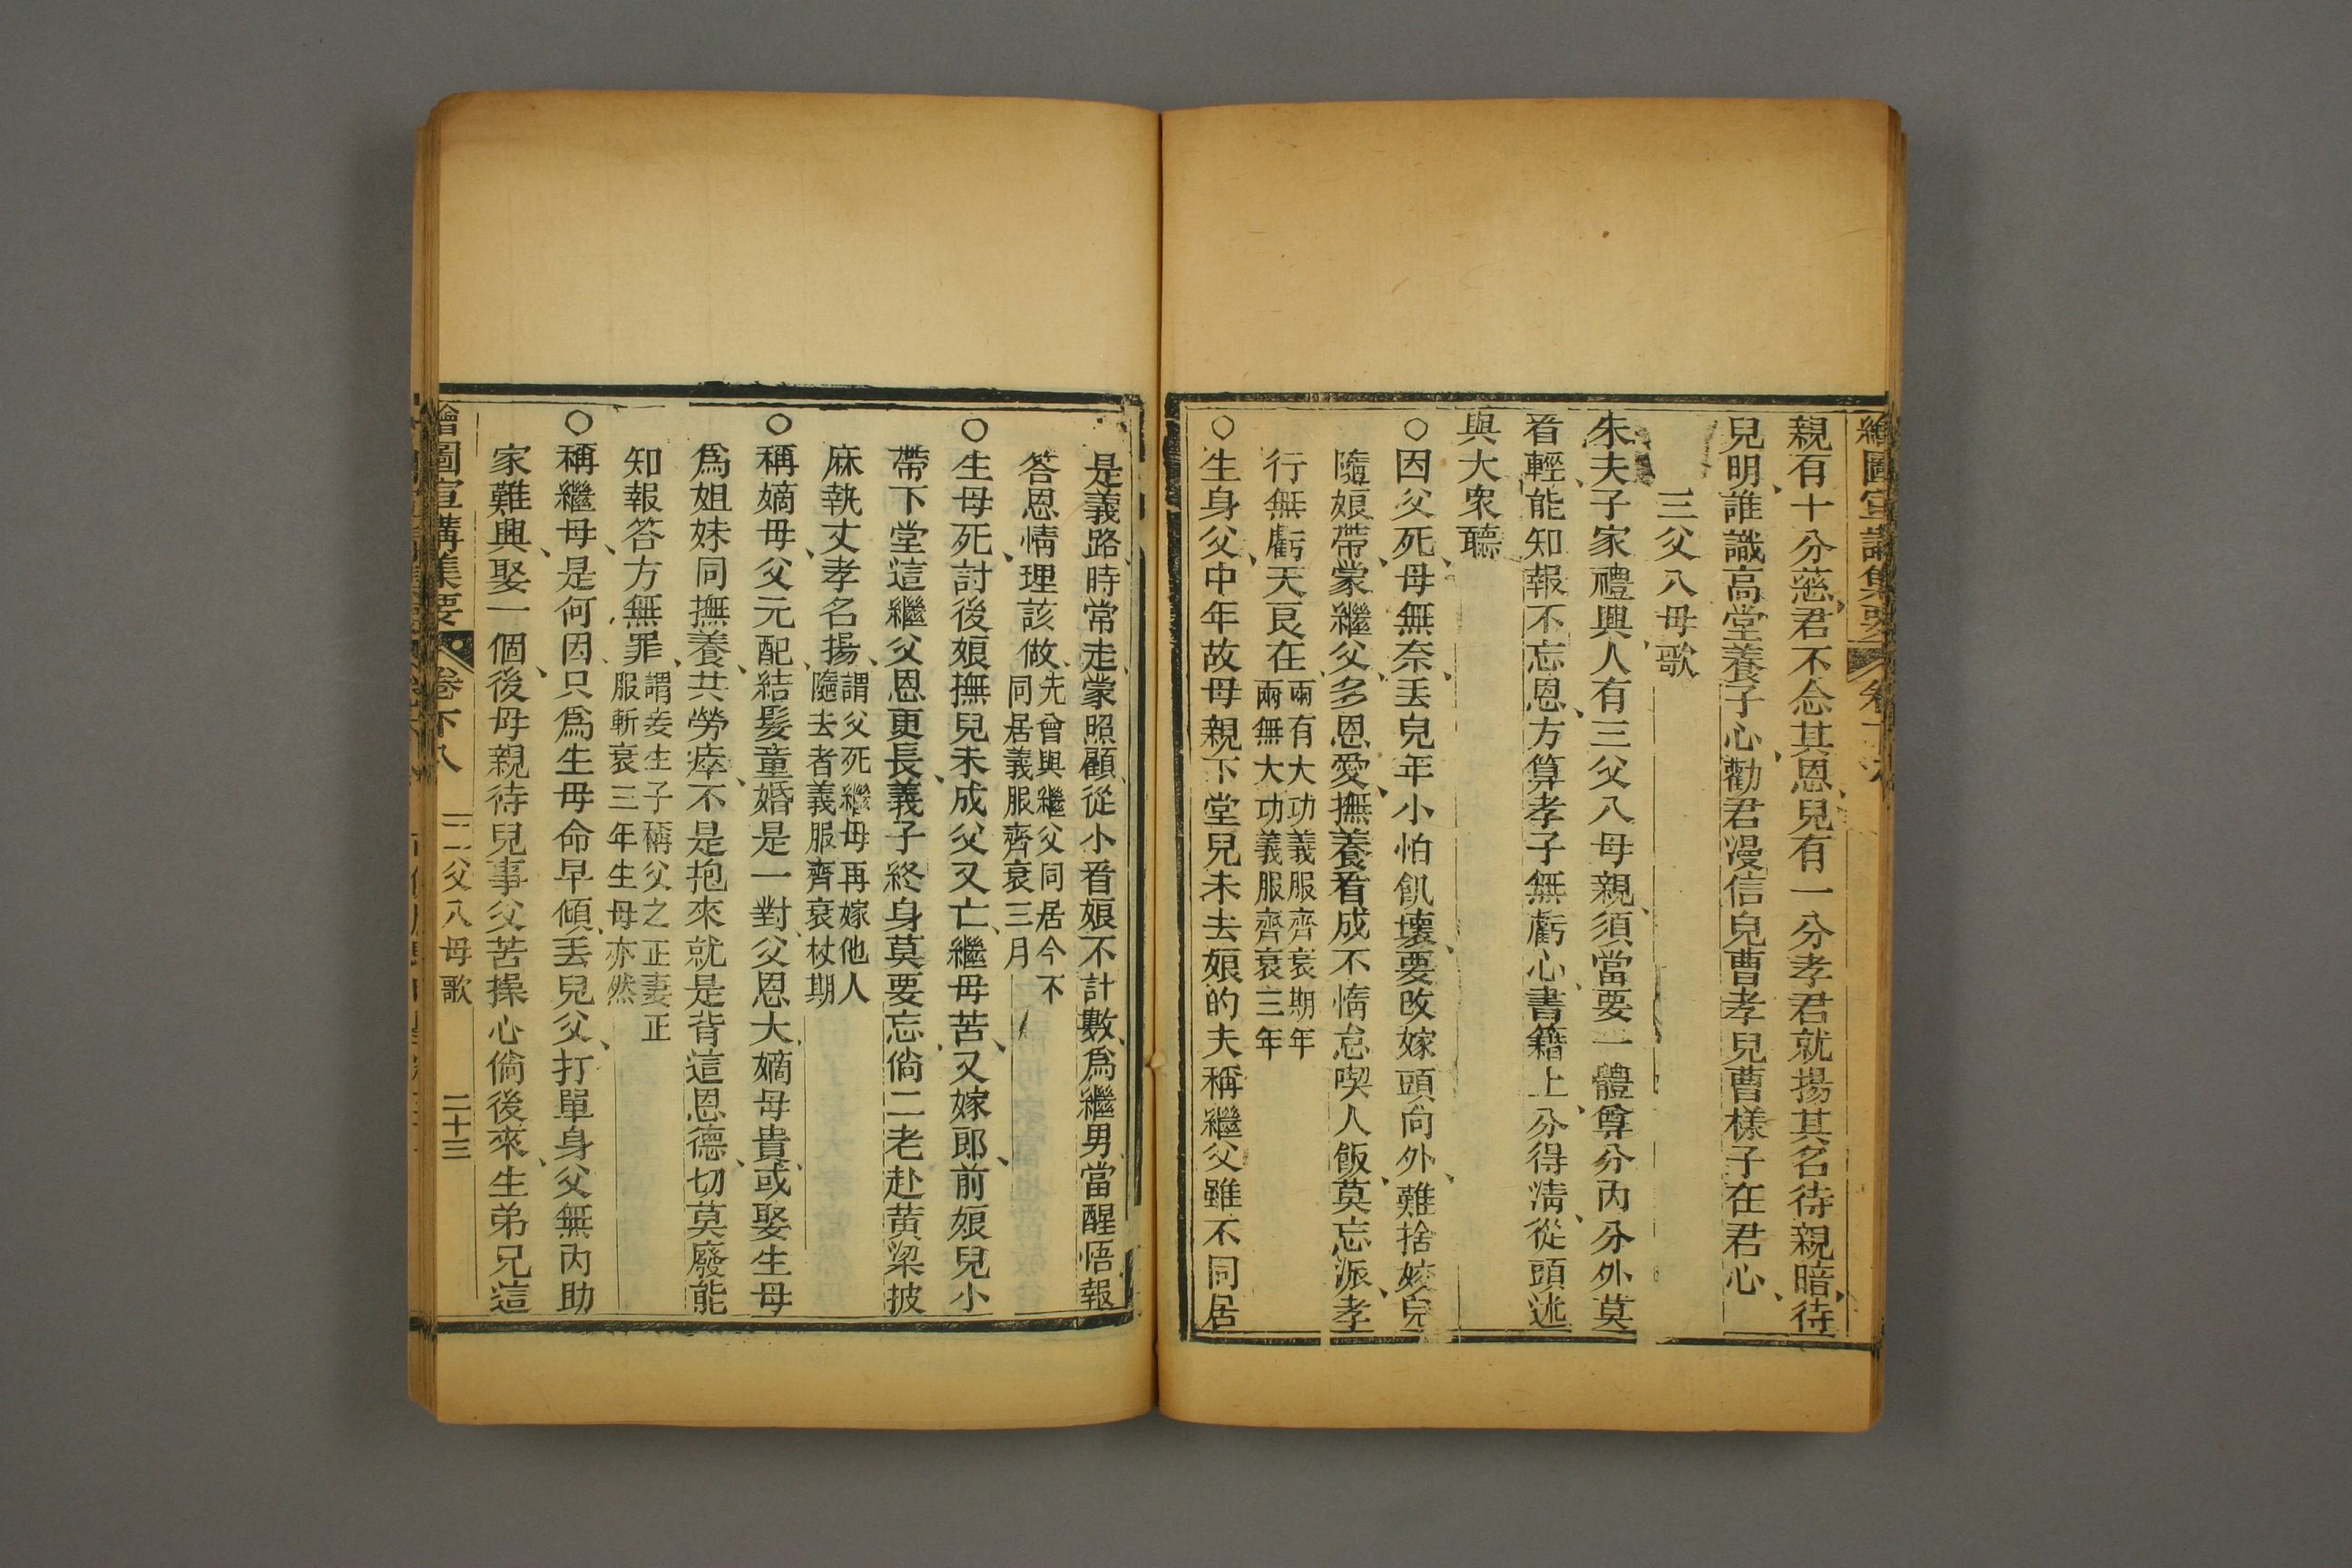 繪圖宣講集要
親有十分慈、君不念其恩、兒有一分孝君就揚其名待親暗、待
兒明、誰識高堂養子心、勸君漫信兒曹孝兒曹樣子在君心、
三父八母歌
朱夫子家禮興、人有三父八母親、須當要一體尊分內分外莫
看輕、能知報不忘恩、方算孝子無虧心、書籍上、分得清、從頭述
與大衆聽
○因父死、母無奈、丟兒年小怕飢壞、要改嫁頭向外、難捨姣兒
隨娘帶、蒙繼父、多恩愛、撫養看成不惰怠喫人飯、莫忘派、孝
行無虧天良在、兩有大功義服齊衰期年
兩無大功義服齊衰三年
○生身父、中年故母親下堂兒未去娘的夫稱繼父雖不同居
是義路、時常走、蒙照顧、從小看娘不計數、爲繼男、當醒悟報
答恩情理該做、先曾與繼父同居今不
同居義服齊衰三月
○生母死、討後娘撫兒未成父又亡、繼母苦、又嫁郎、前娘兒小
帶下堂這繼父恩更長、義子終身莫要忘、倘二老赴黃梁披
麻執丈孝名揚、謂父死繼母再嫁他人
隨去者義服齊衰杖期
○稱嫡母、父元配、結髮童婚是一對、父恩大、嫡母貴、或娶生母
爲姐妹同撫養、共勞瘁、不是抱來就是背這恩德、切莫廢能
知報答方無罪、謂妾生子稱父之正妻正
服斬衰三年生母亦然
○稱繼母、是何因、只爲生母命早傾、丟兒父、打單身父無內助
家難興、娶一個、後母親待兒事父苦操心倘後來、生弟兄這
繪圖宣講集要 卷下八 三父八母歌 二十三